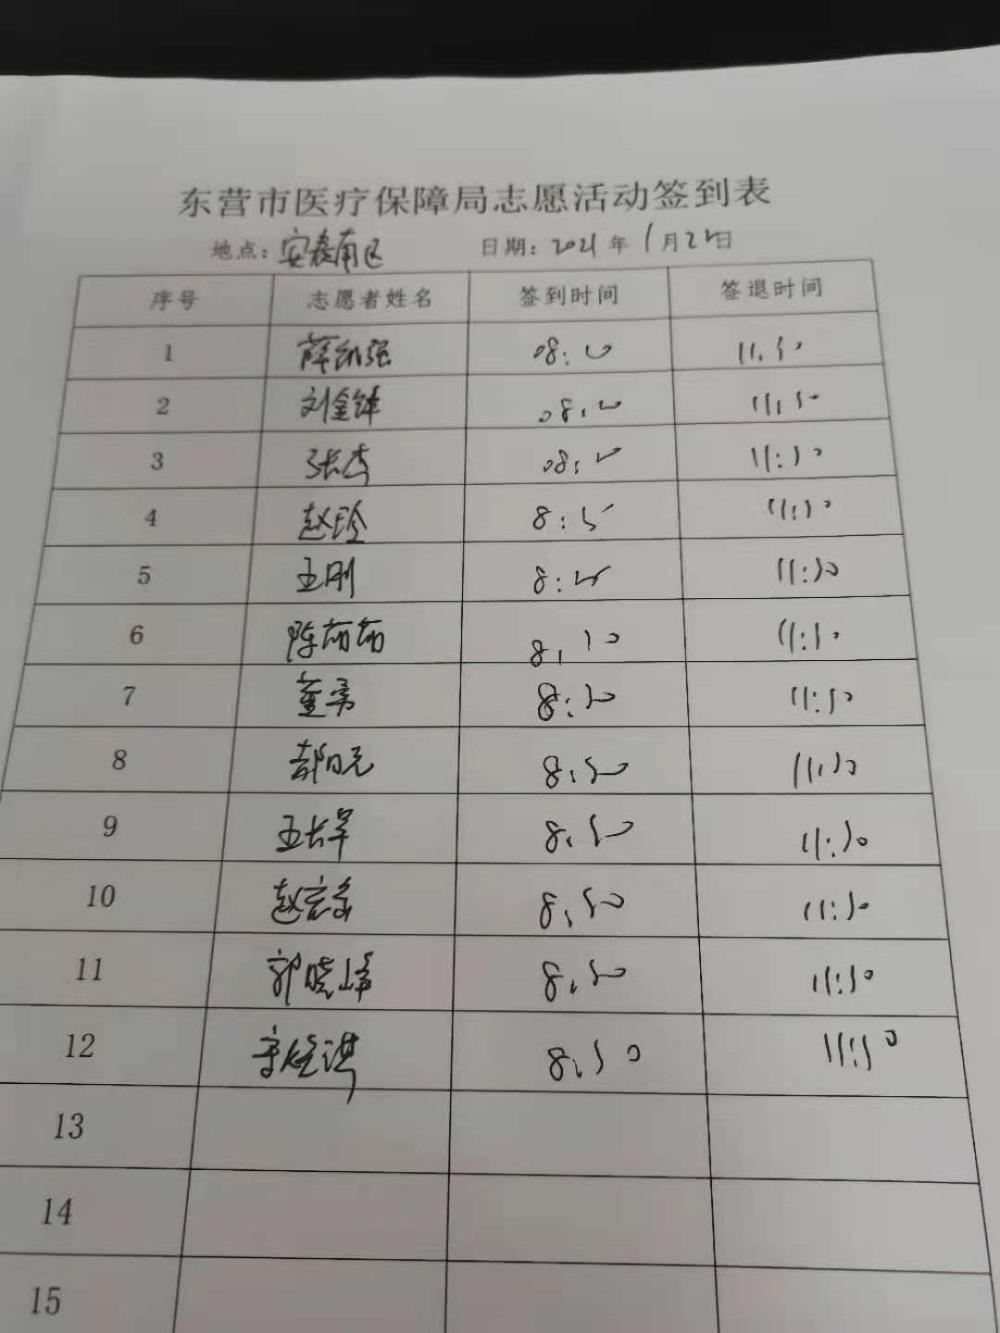 东营市医疗保障局志愿活动签到表
地点：安泰南区 日期：2021年1月22日
序号 志愿者姓名 签到时间 签退时间
1 薛纪强 08:20 11:30
2 刘金锋 08:20 11:30
3 张杰 08:20 11:30
4 赵玲 8:25 11:30
5 王刚 8:25 11:30
6 陈萌萌 8:30 11:30
7 董勇 8:30 11:30
8 8:30 11:30
9 8:30 11:30
10 8:30 11:30
11 郭晓峰 8:30 11:30
12 8:30 11:30
13
14
15